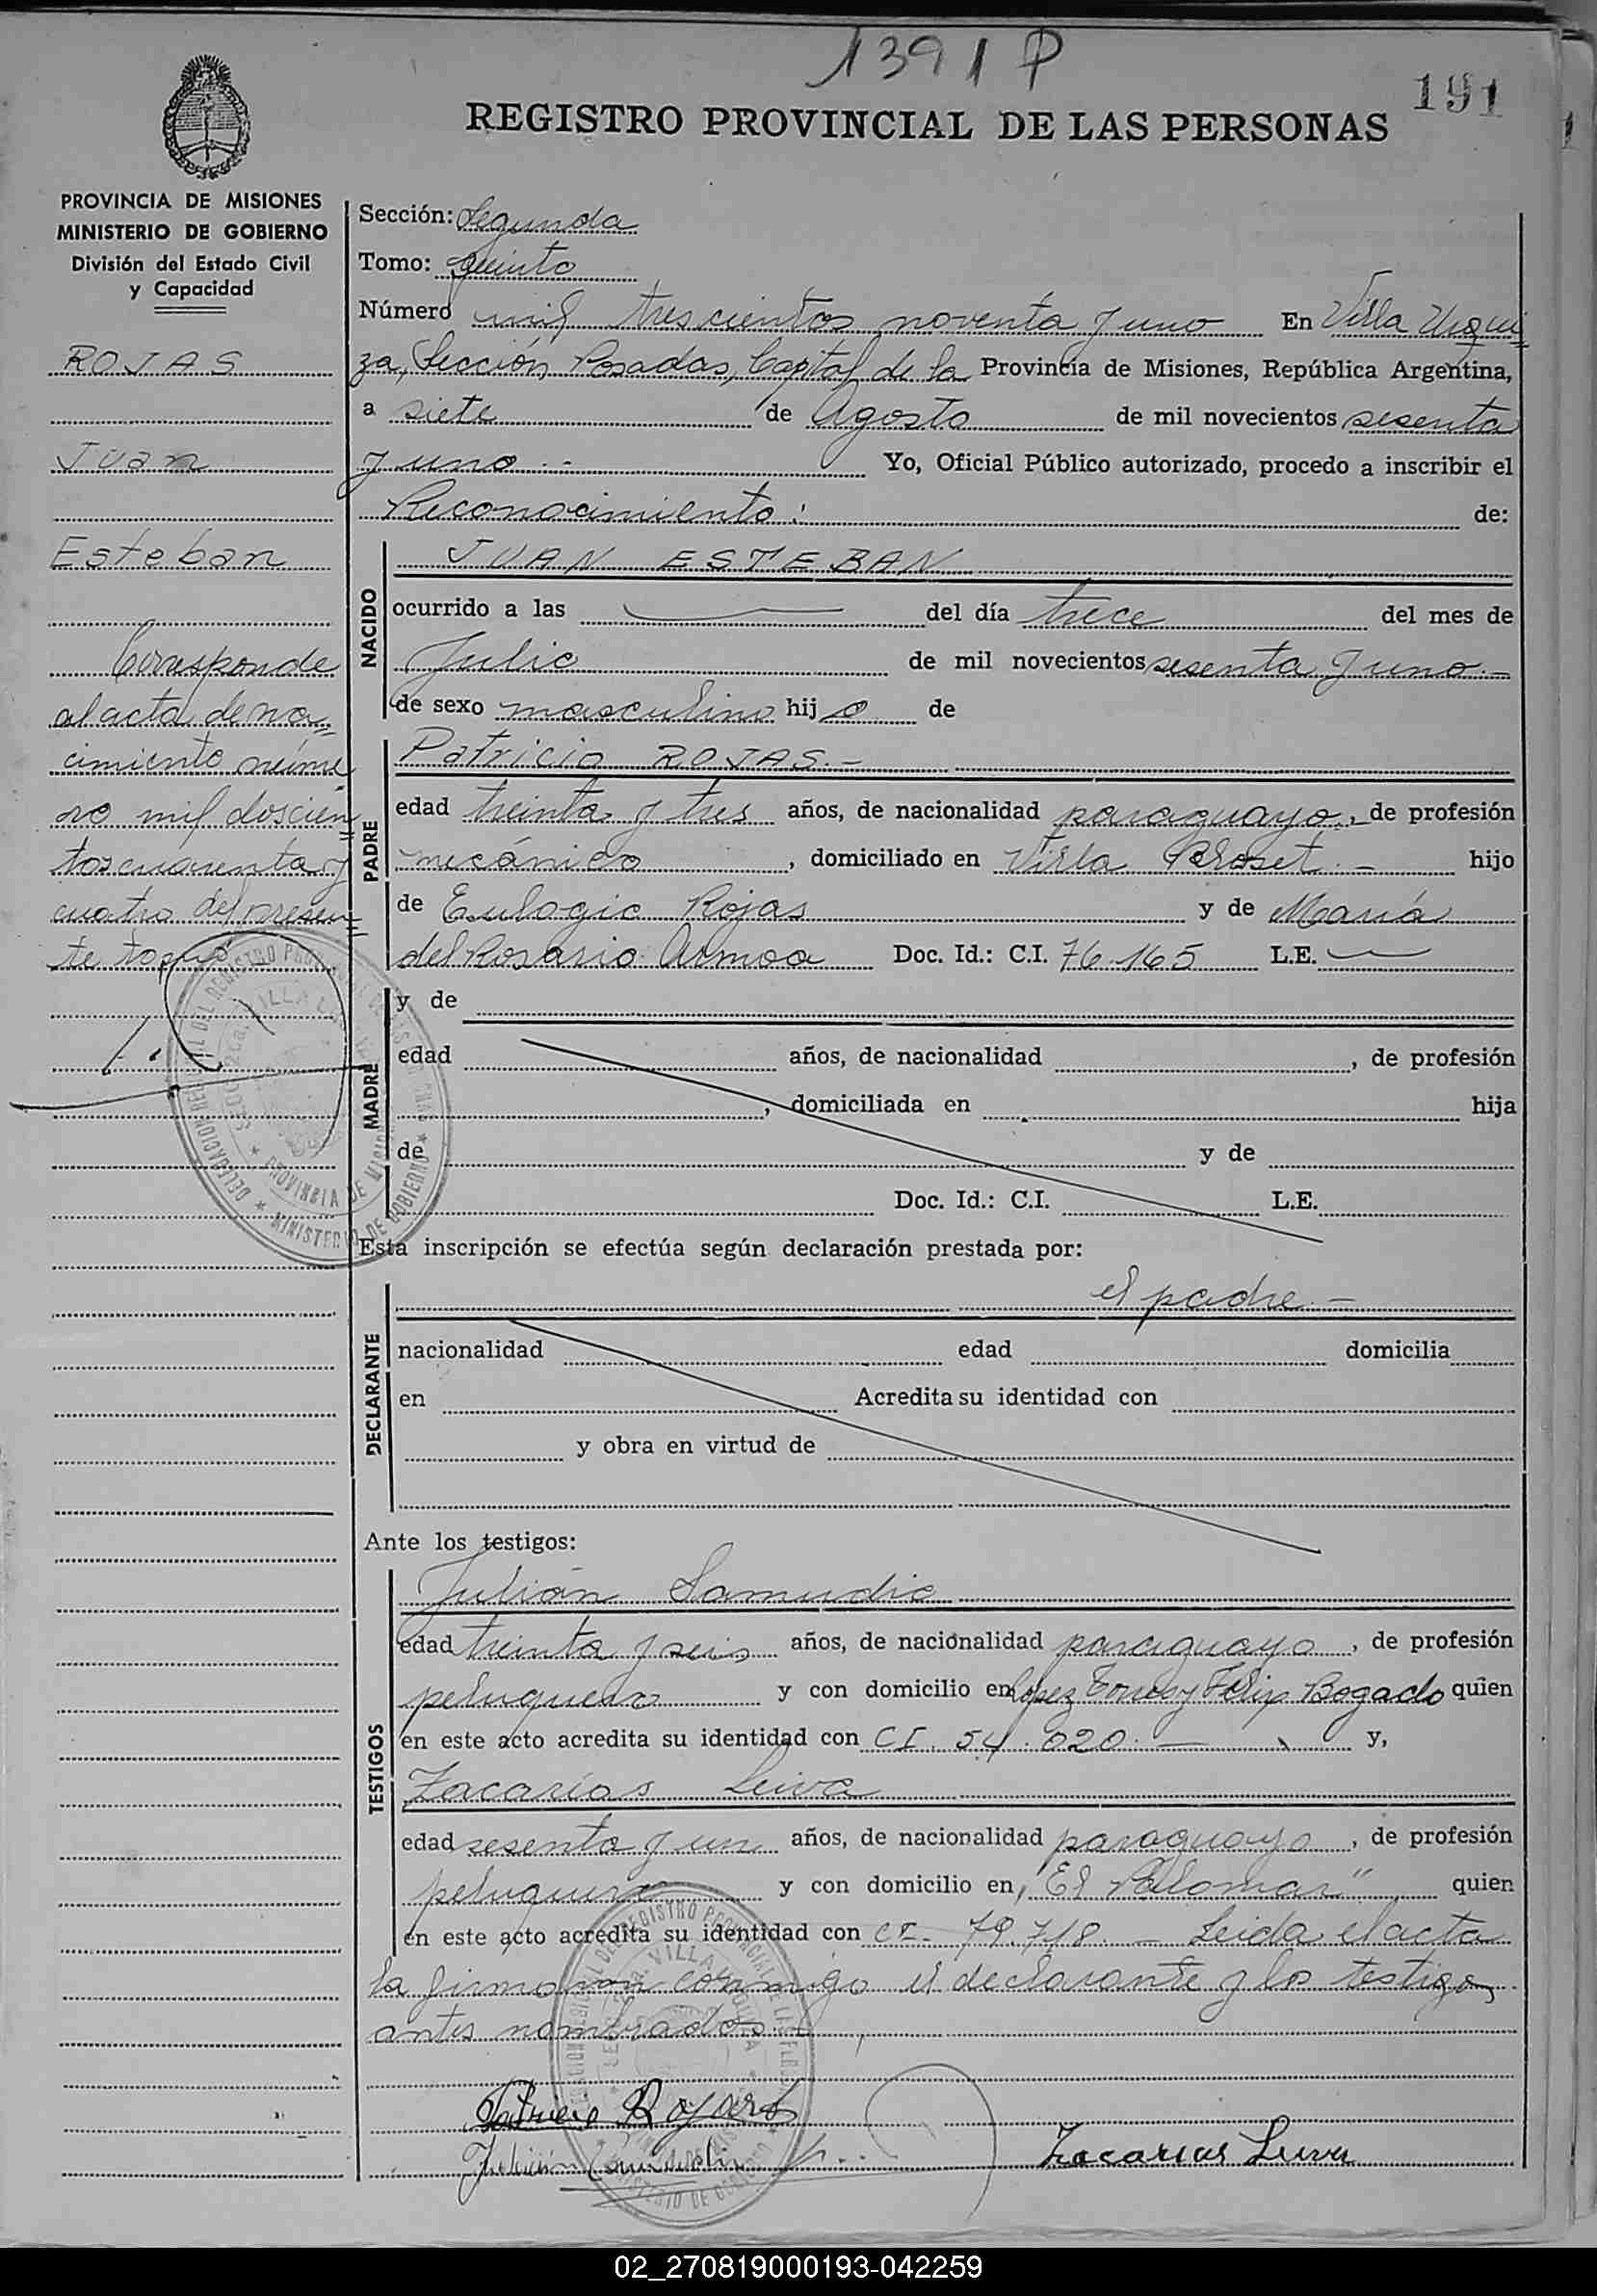 1391 P
191
REGISTRO PROVINCIAL DE LAS PERSONAS
PROVINCIA DE MISIONES
MINISTERIO DE GOBIERNO
División del Estado Civil
y Capacidad
ROJAS
Juan
Esteban
Corresponde
al acta de na=
cimiento núme
ro mil doscien=
tos cuarenta y
cuatro del presen=
te tomo
Sección: Segunda
Tomo: Quinto
Número mil trescientos noventa y uno En Villa Urqui=
za, Sección Posadas, Capital de la Provincia de Misiones, República Argentina,
a siete de Agosto de mil novecientos sesenta
y uno.- Yo, Oficial Público autorizado, procedo a inscribir el
Reconocimiento: de:
NACIDO
JUAN ESTEBAN
ocurrido a las del día trece del mes de
Julio de mil novecientos sesenta y uno.-
de sexo masculino hijo de
PADRE
Patricio ROJAS.-
edad treinta y tres años, de nacionalidad paraguayo, de profesión
mecánico, domiciliado en Villa hijo
de Eulogio Rojas y de María
del Rosario Armoa Doc. Id.: C.I. 76.165 L.E. —
MADRE
y de
edad años, de nacionalidad , de profesión
, domiciliada en hija
de y de
Doc. Id.: C.I. L.E.
Esta inscripción se efectúa según declaración prestada por:
DECLARANTE
el padre.-
nacionalidad edad domicilia
en Acredita su identidad con
y obra en virtud de
Ante los testigos:
TESTIGOS
Julián Samudio
edad treinta y seis años, de nacionalidad paraguayo, de profesión
peluquero y con domicilio en López Torres y Félix Bogado quien
en este acto acredita su identidad con CI. 54.020.- y,
Zacarías Leiva
edad sesenta y un años, de nacionalidad paraguayo, de profesión
peluquero y con domicilio en "El Palomar" quien
en este acto acredita su identidad con CI. 79.718.- Leida el acta
la firmaron conmigo el declarante y los testigos
antes nombrados.-
Patricio Rojas
Julián Samudio
Zacarias Leiva
02_270819000193-042259